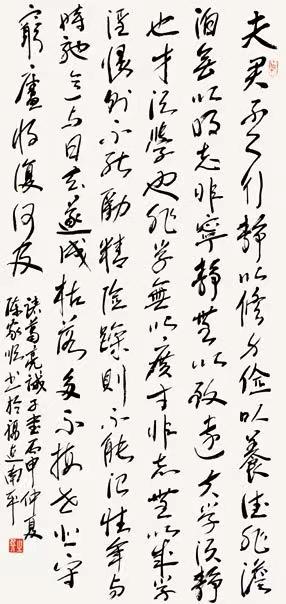 夫君子之行靜以修身儉以養德非澹
泊無以明志非寧靜無以致遠夫學須靜
也才須學也非學無以廣才非志無以成學
淫慢則不能勵精險躁則不能治性年與
時馳意與日去遂成枯落多不接世悲守
窮廬將復何及
諸葛亮誡子書丙申仲夏
書於